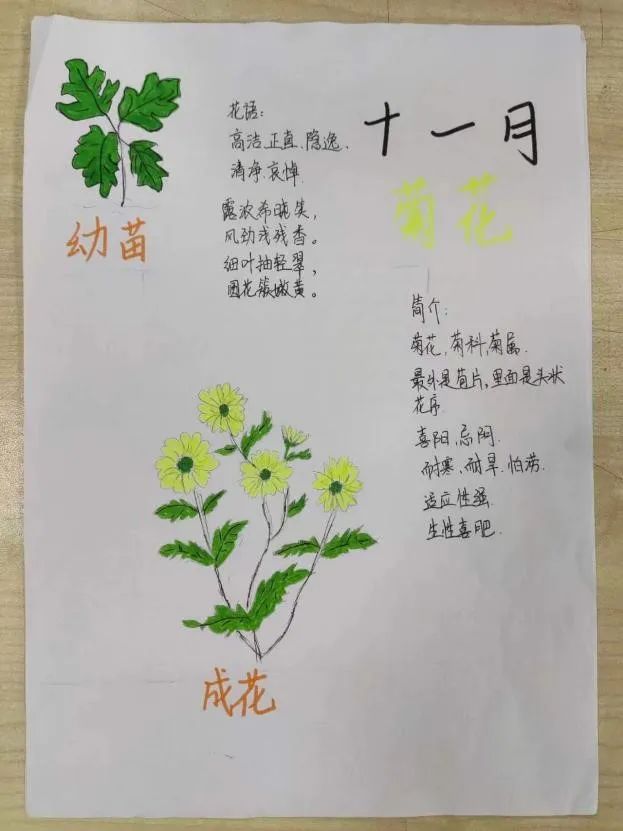 十一月
菊花
幼苗
花语:
高洁.正直.隐逸.
清净.哀悼.
露浓希晓笑,
风劲浅残香。
细叶抽轻翠,
圆花簇嫩黄。
简介:
菊花,菊科,菊属.
最外是苞片,里面是头状
花序.
喜阳,忌阴.
耐寒、耐旱.怕涝.
适应性强.
生性喜肥.
成花